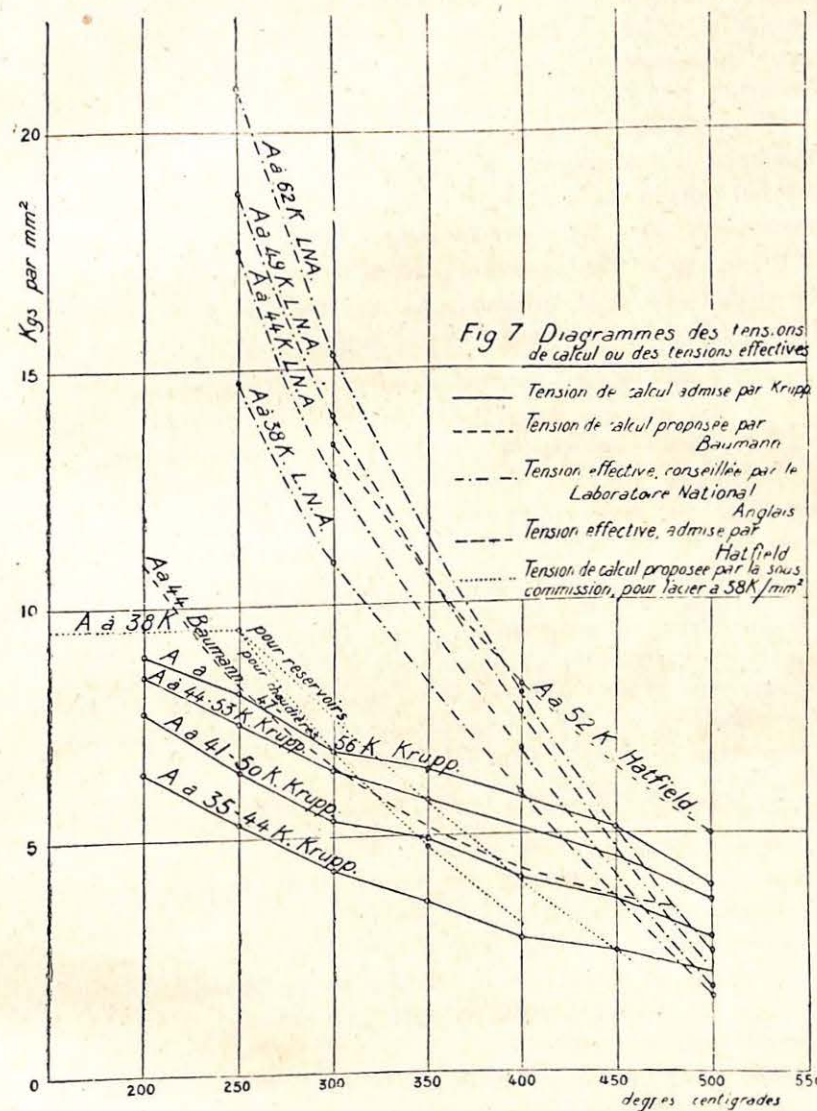 Kgs par mm²
20
15
10
5
0
200
250
300
350
400
450
500
degres centigrades
Fig 7 Diagrammes des tensions
de calcul ou des tensions effectives
Tension de calcul admise par Krupp
Tension de calcul proposée par
Baumann
Tension effective, conseillée par le
Laboratoire National
Anglais
Tension effective, admise par
Hatfield
Tension de calcul proposée par la sous
commission, pour l'acier a 38K/mm²
A à 62 K LNA.
A à 49 K. L.N.A
A à 44 K L.N.A
A à 38 K. L.N.A.
A à 44 Baumann
A à 38 K
pour reservoirs
pour chaudières
A à 47 56 K. Krupp.
A à 44-53 K. Krupp.
A à 41-50 K. Krupp.
A à 35-44 K. Krupp.
A à 52 K. Hatfield